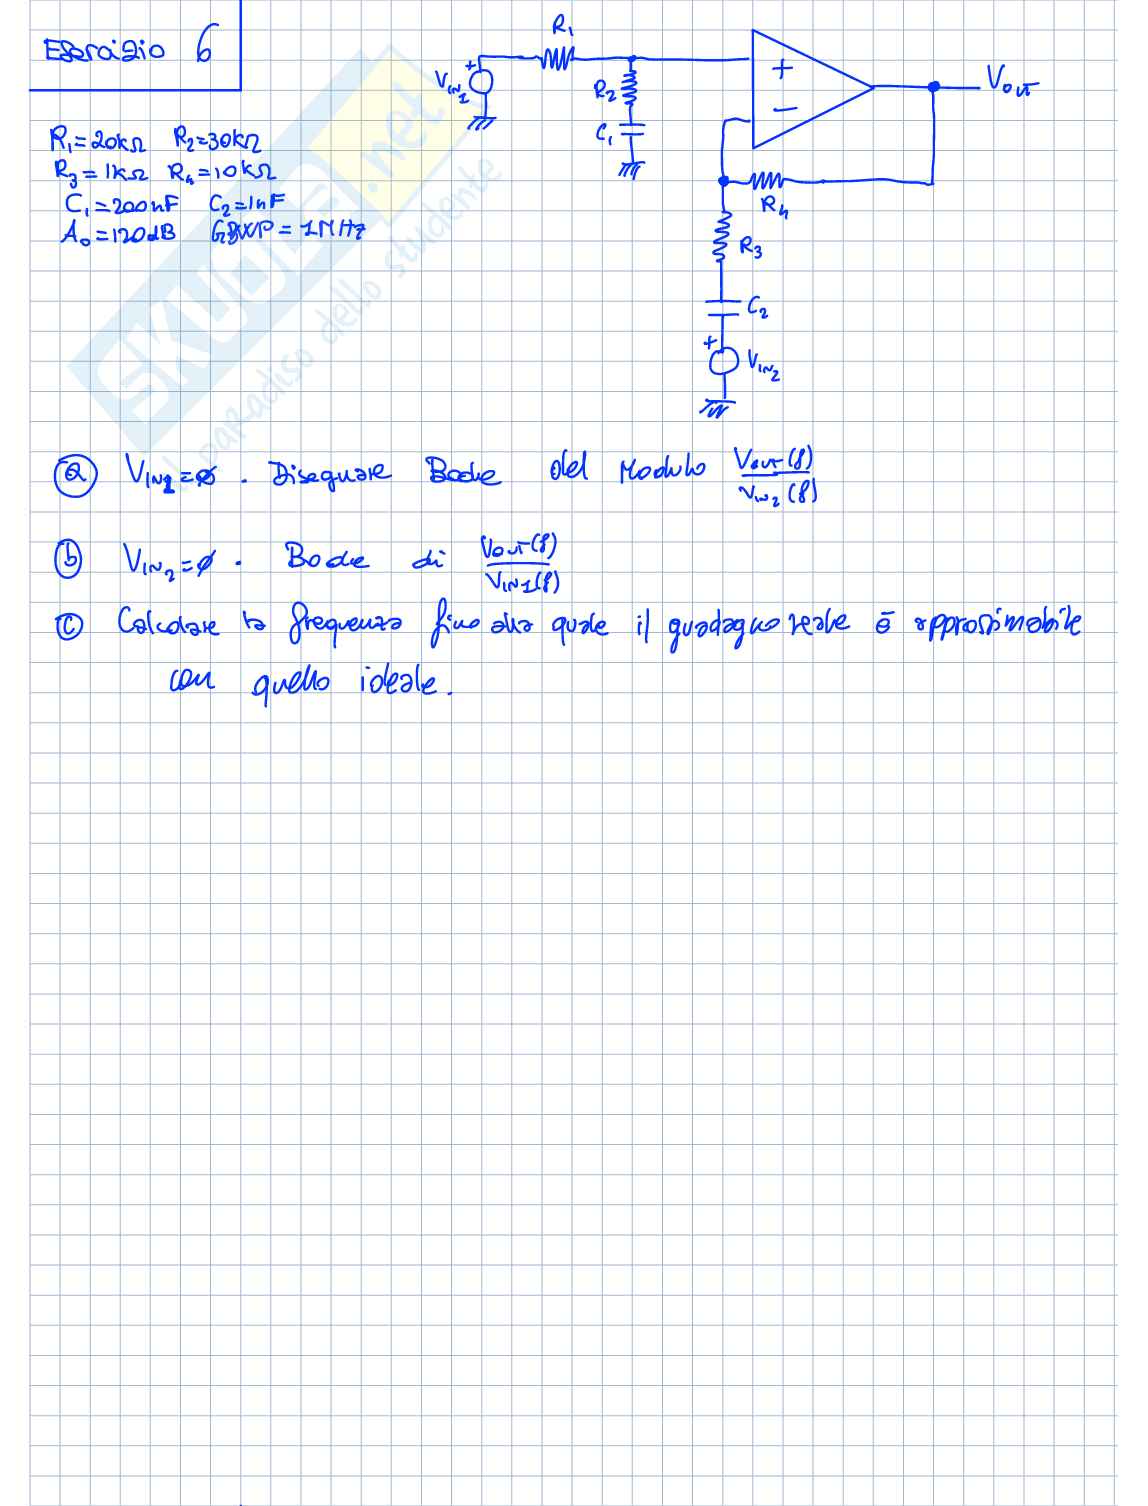 Esercizio 6
R₁=20kΩ R₂=30kΩ
R₃=1kΩ R₄=10kΩ
C₁=200nF C₂=1nF
A₀=120dB GBWP=1MHz
R₁
V_IN1
+
R₂
C₁
+
−
V_OUT
R₄
R₃
C₂
+
V_IN2
SKUOLA.net
il paradiso dello studente
a V_IN1=ø . Disegnare Bode del Modulo V_OUT(f)/V_IN2(f)
b V_IN2=ø . Bode di V_OUT(f)/V_IN1(f)
c Calcolare la frequenza fino alla quale il guadagno reale è approssimabile
con quello ideale.